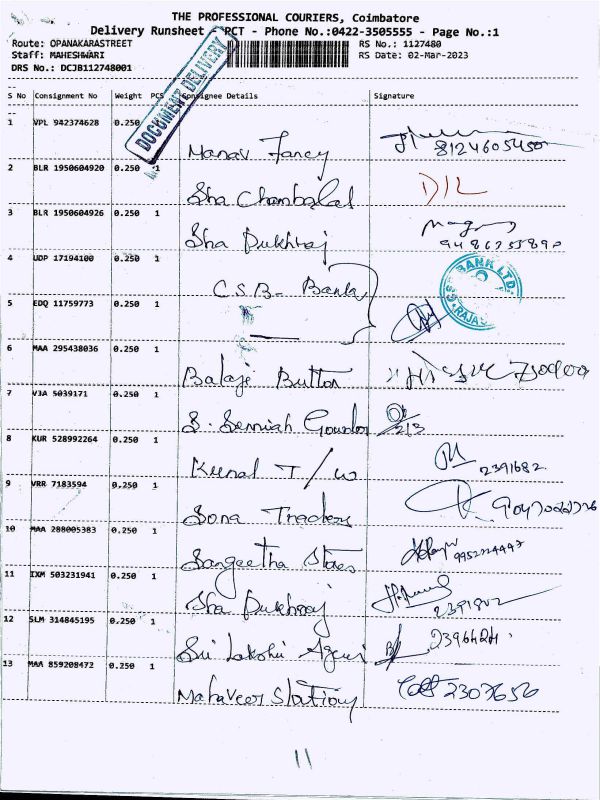 THE PROFESSIONAL COURIERS, Coimbatore
Delivery Runsheet - PCT - Phone No.:0422-3505555 - Page No.:1
Route: OPANAKARASTREET RS No.: 1127480
Staff: MAHESHWARI RS Date: 02-Mar-2023
DRS No.: DCJB112748001
DOCUMENT DELIVERY
S No Consignment No Weight PCS Consignee Details Signature
1 VPL 942374628 0.250
Manav Fancy 8124605450
2 BLR 1950604920 0.250 1
Sha Chambalal D/L
3 BLR 1950604926 0.250 1
Sha Dukhraj
4 UDP 17194100 0.250 1
C.S.B- Bank
BANK LTD.
5 EDQ 11759773 0.250 1
6 MAA 295438036 0.250 1
Balaje Button
7 V3A 5039171 0.250 1
S. Senniah Goundor 2/3
8 KUR 528992264 0.250 1
Kunal T/W 2391682
9 VRR 7183594 0.250 1
Sona Traders
10 MAA 288005383 0.250 1
Sangeetha Stores
11 IXM 503231941 0.250 1
Sha Dukhraj
12 SLM 314845195 0.250 1
Sri Lakshi Agensi
13 MAA 859208472 0.250 1
Mahaveer Stationy 2307656
11